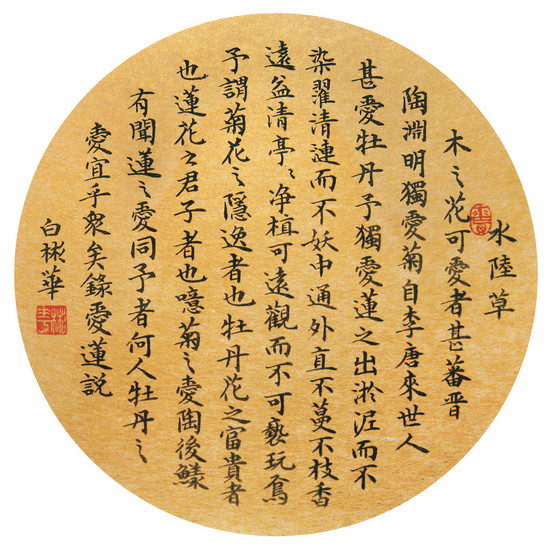 水陸草
木之花可愛者甚蕃晋
陶淵明獨愛菊自李唐來世人
甚愛牡丹予獨愛蓮之出淤泥而不
染濯清漣而不妖中通外直不蔓不枝香
遠益清亭〻净植可遠觀而不可褻玩焉
予謂菊花之隱逸者也牡丹花之富貴者
也蓮花之君子者也噫菊之愛陶後鱻
有聞蓮之愛同予者何人牡丹之
愛宜乎衆矣錄愛蓮説
白彬華